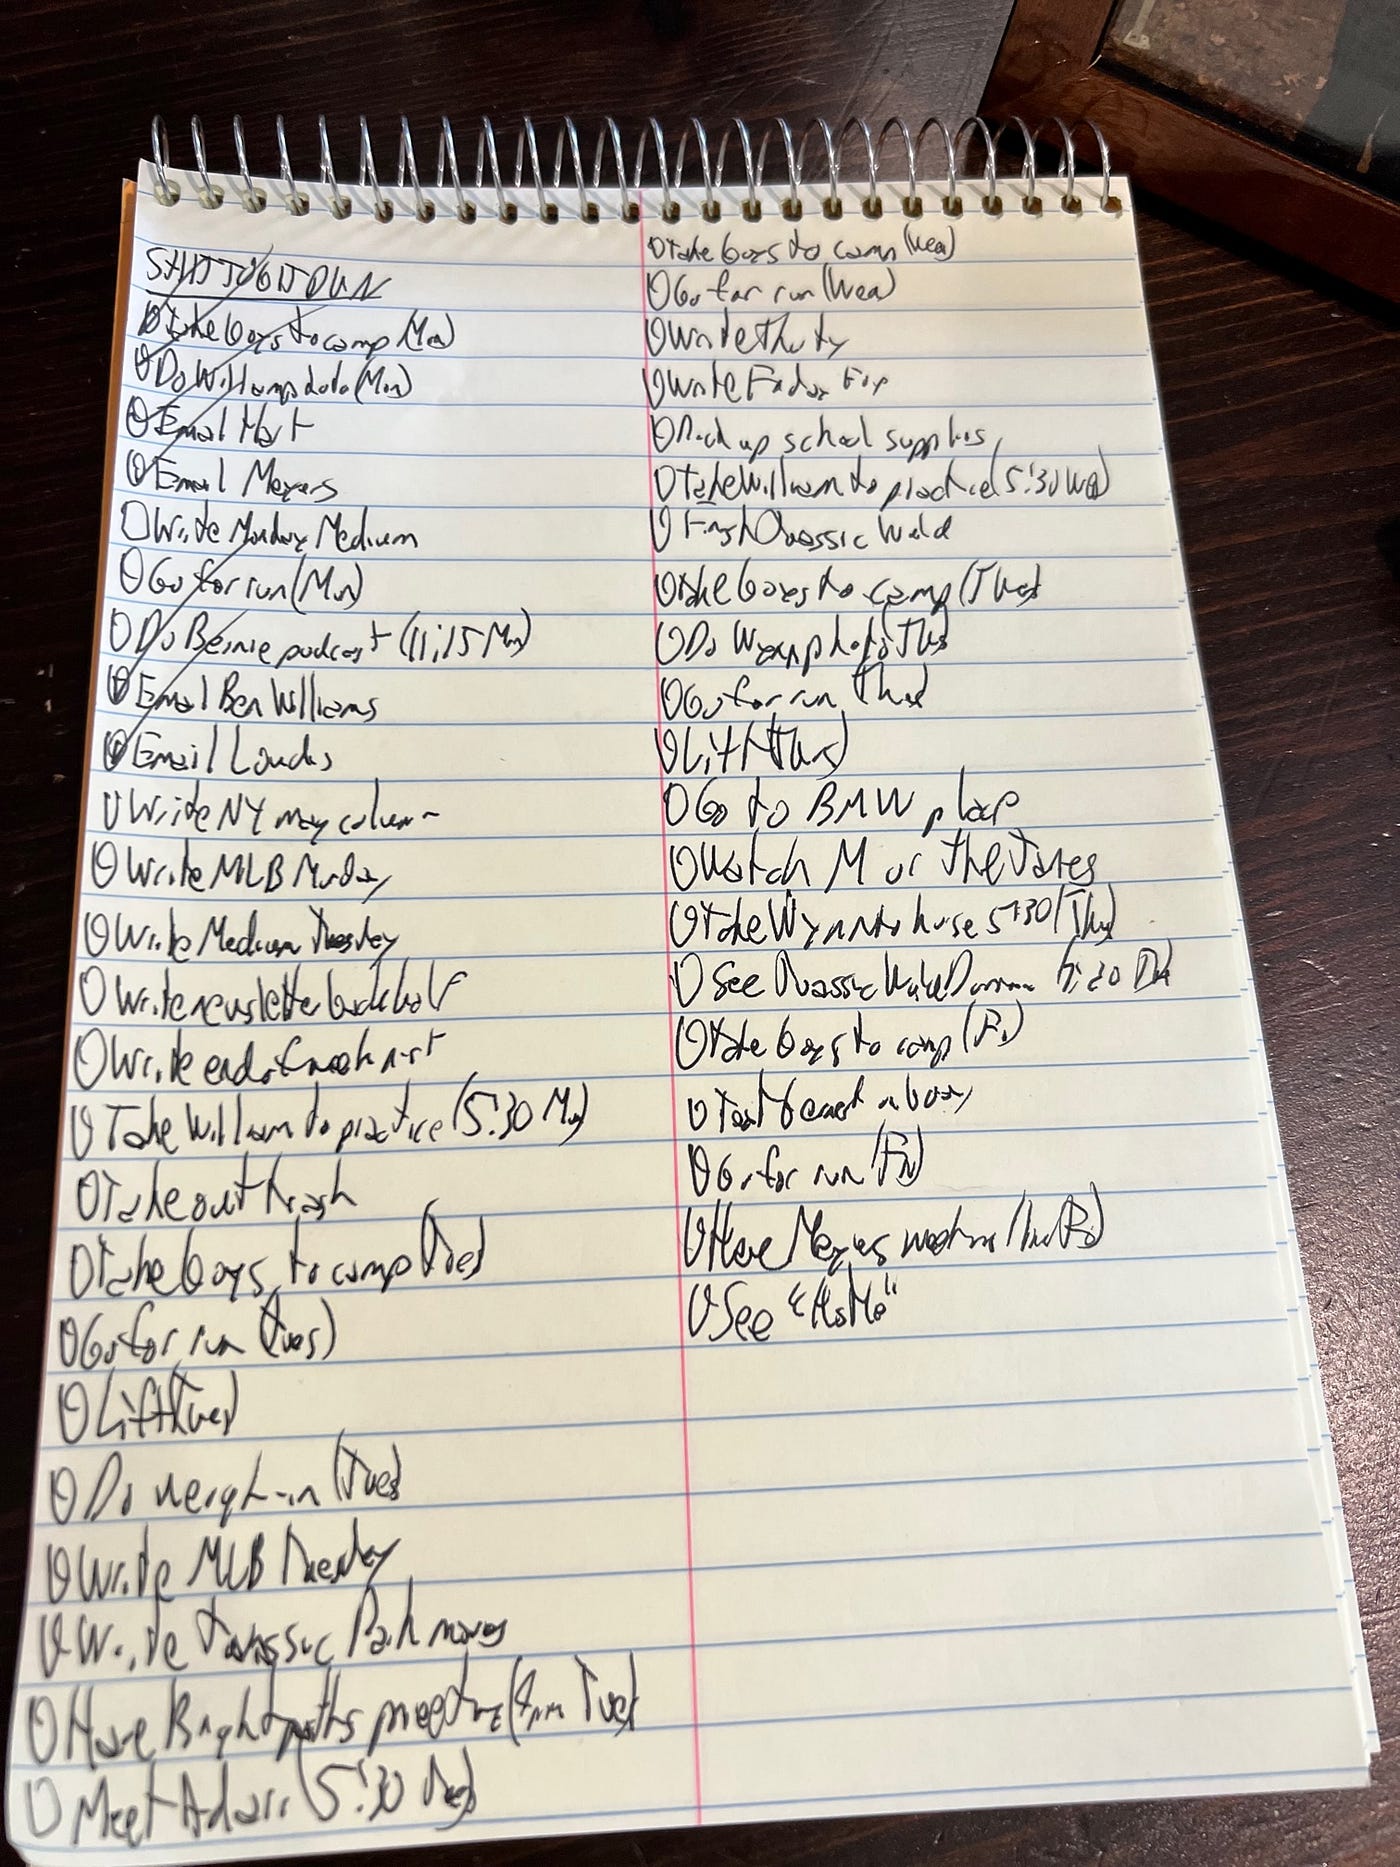 SHIT TO GIT DUN
Take boys to camp (Mon)
Do Will camp photo (Mon)
Email Hart
Email Meyers
Write Monday Medium
Go for run (Mon)
Do Bernie podcast (11:15 Mon)
Email Ben Williams
Email Loucks
Write NY mag column
Write MLB Monday
Write Medium Tuesday
Write newsletter back half
Write end of
Take William to practice (5:30 Mon)
Take out trash
Take boys to camp (Tues)
Go for run (Tues)
Lift (Tues)
Do weigh-in (Tues)
Write MLB Tuesday
Write Jurassic Park movies
Have Bright paths meeting (4pm Tues)
Meet Adam (5:30 Tues)
Take boys to camp (Wed)
Go for run (Wed)
Write Thursday
Write Friday
Pick up school supplies
Take William to practice (5:30 Wed)
Finish Jurassic World
Take boys to camp (Thurs)
Do Wynn photo (Thurs)
Go for run (Thurs)
Lift (Thurs)
Go to BMW place
Watch M or the Janes
Take Wynn to horse 5:30 (Thu)
See Jurassic World Dominion
Take boys to camp (Fri)
Go for run (Fri)
Have Meyers
See